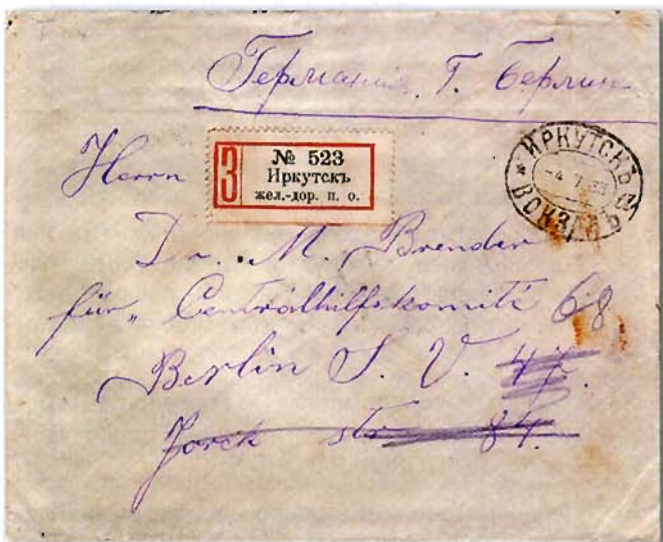 Германия. Г. Берлин
Herrn
З
№ 523
Иркутскъ
жел.-дор. п. о.
ИРКУТСКЪ
-4 7 23
ВОКЗАЛЪ
Dr. M. Brender
für „Centralhilfskomiti 68
Berlin S. V. 47.
Jorck str 84.